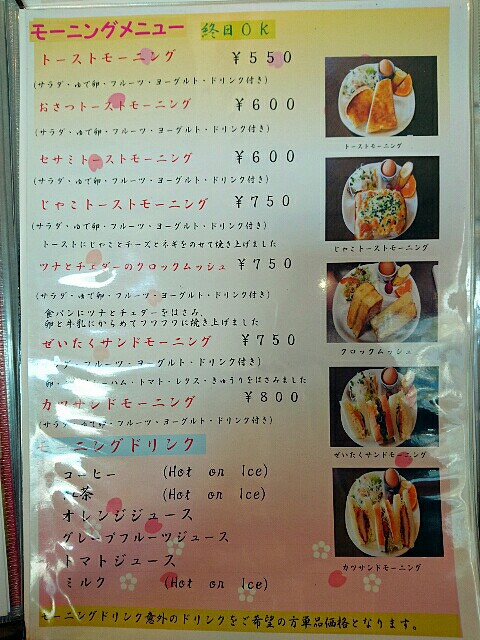 モーニングメニュー 終日OK
トーストモーニング ￥550
(サラダ・ゆで卵・フルーツ・ヨーグルト・ドリンク付き)
おさつトーストモーニング ￥600
(サラダ・ゆで卵・フルーツ・ヨーグルト・ドリンク付き)
セサミトーストモーニング ￥600
(サラダ・ゆで卵・フルーツ・ヨーグルト・ドリンク付き)
じゃこトーストモーニング ￥750
(サラダ・ゆで卵・フルーツ・ヨーグルト・ドリンク付き)
トーストにじゃことチーズとネギをのせて焼き上げました
ツナとチェダーのクロックムッシュ ￥750
(サラダ・ゆで卵・フルーツ・ヨーグルト・ドリンク付き)
食パンにツナとチェダーをはさみ、
卵と牛乳にからめてフワフワに焼き上げました
ぜいたくサンドモーニング ￥750
フルーツ・ヨーグルト・ドリンク付き)
ハム・トマト・レタス・きゅうりをはさみました
カツサンドモーニング ￥800
(サラダ・ゆで卵・フルーツ・ヨーグルト・ドリンク付き)
モーニングドリンク
コーヒー (Hot on Ice)
紅茶 (Hot on Ice)
オレンジジュース
グレープフルーツジュース
トマトジュース
ミルク (Hot on Ice)
モーニングドリンク意外のドリンクをご希望の方単品価格となります。
トーストモーニング
じゃこトーストモーニング
クロックムッシュ
ぜいたくサンドモーニング
カツサンドモーニング